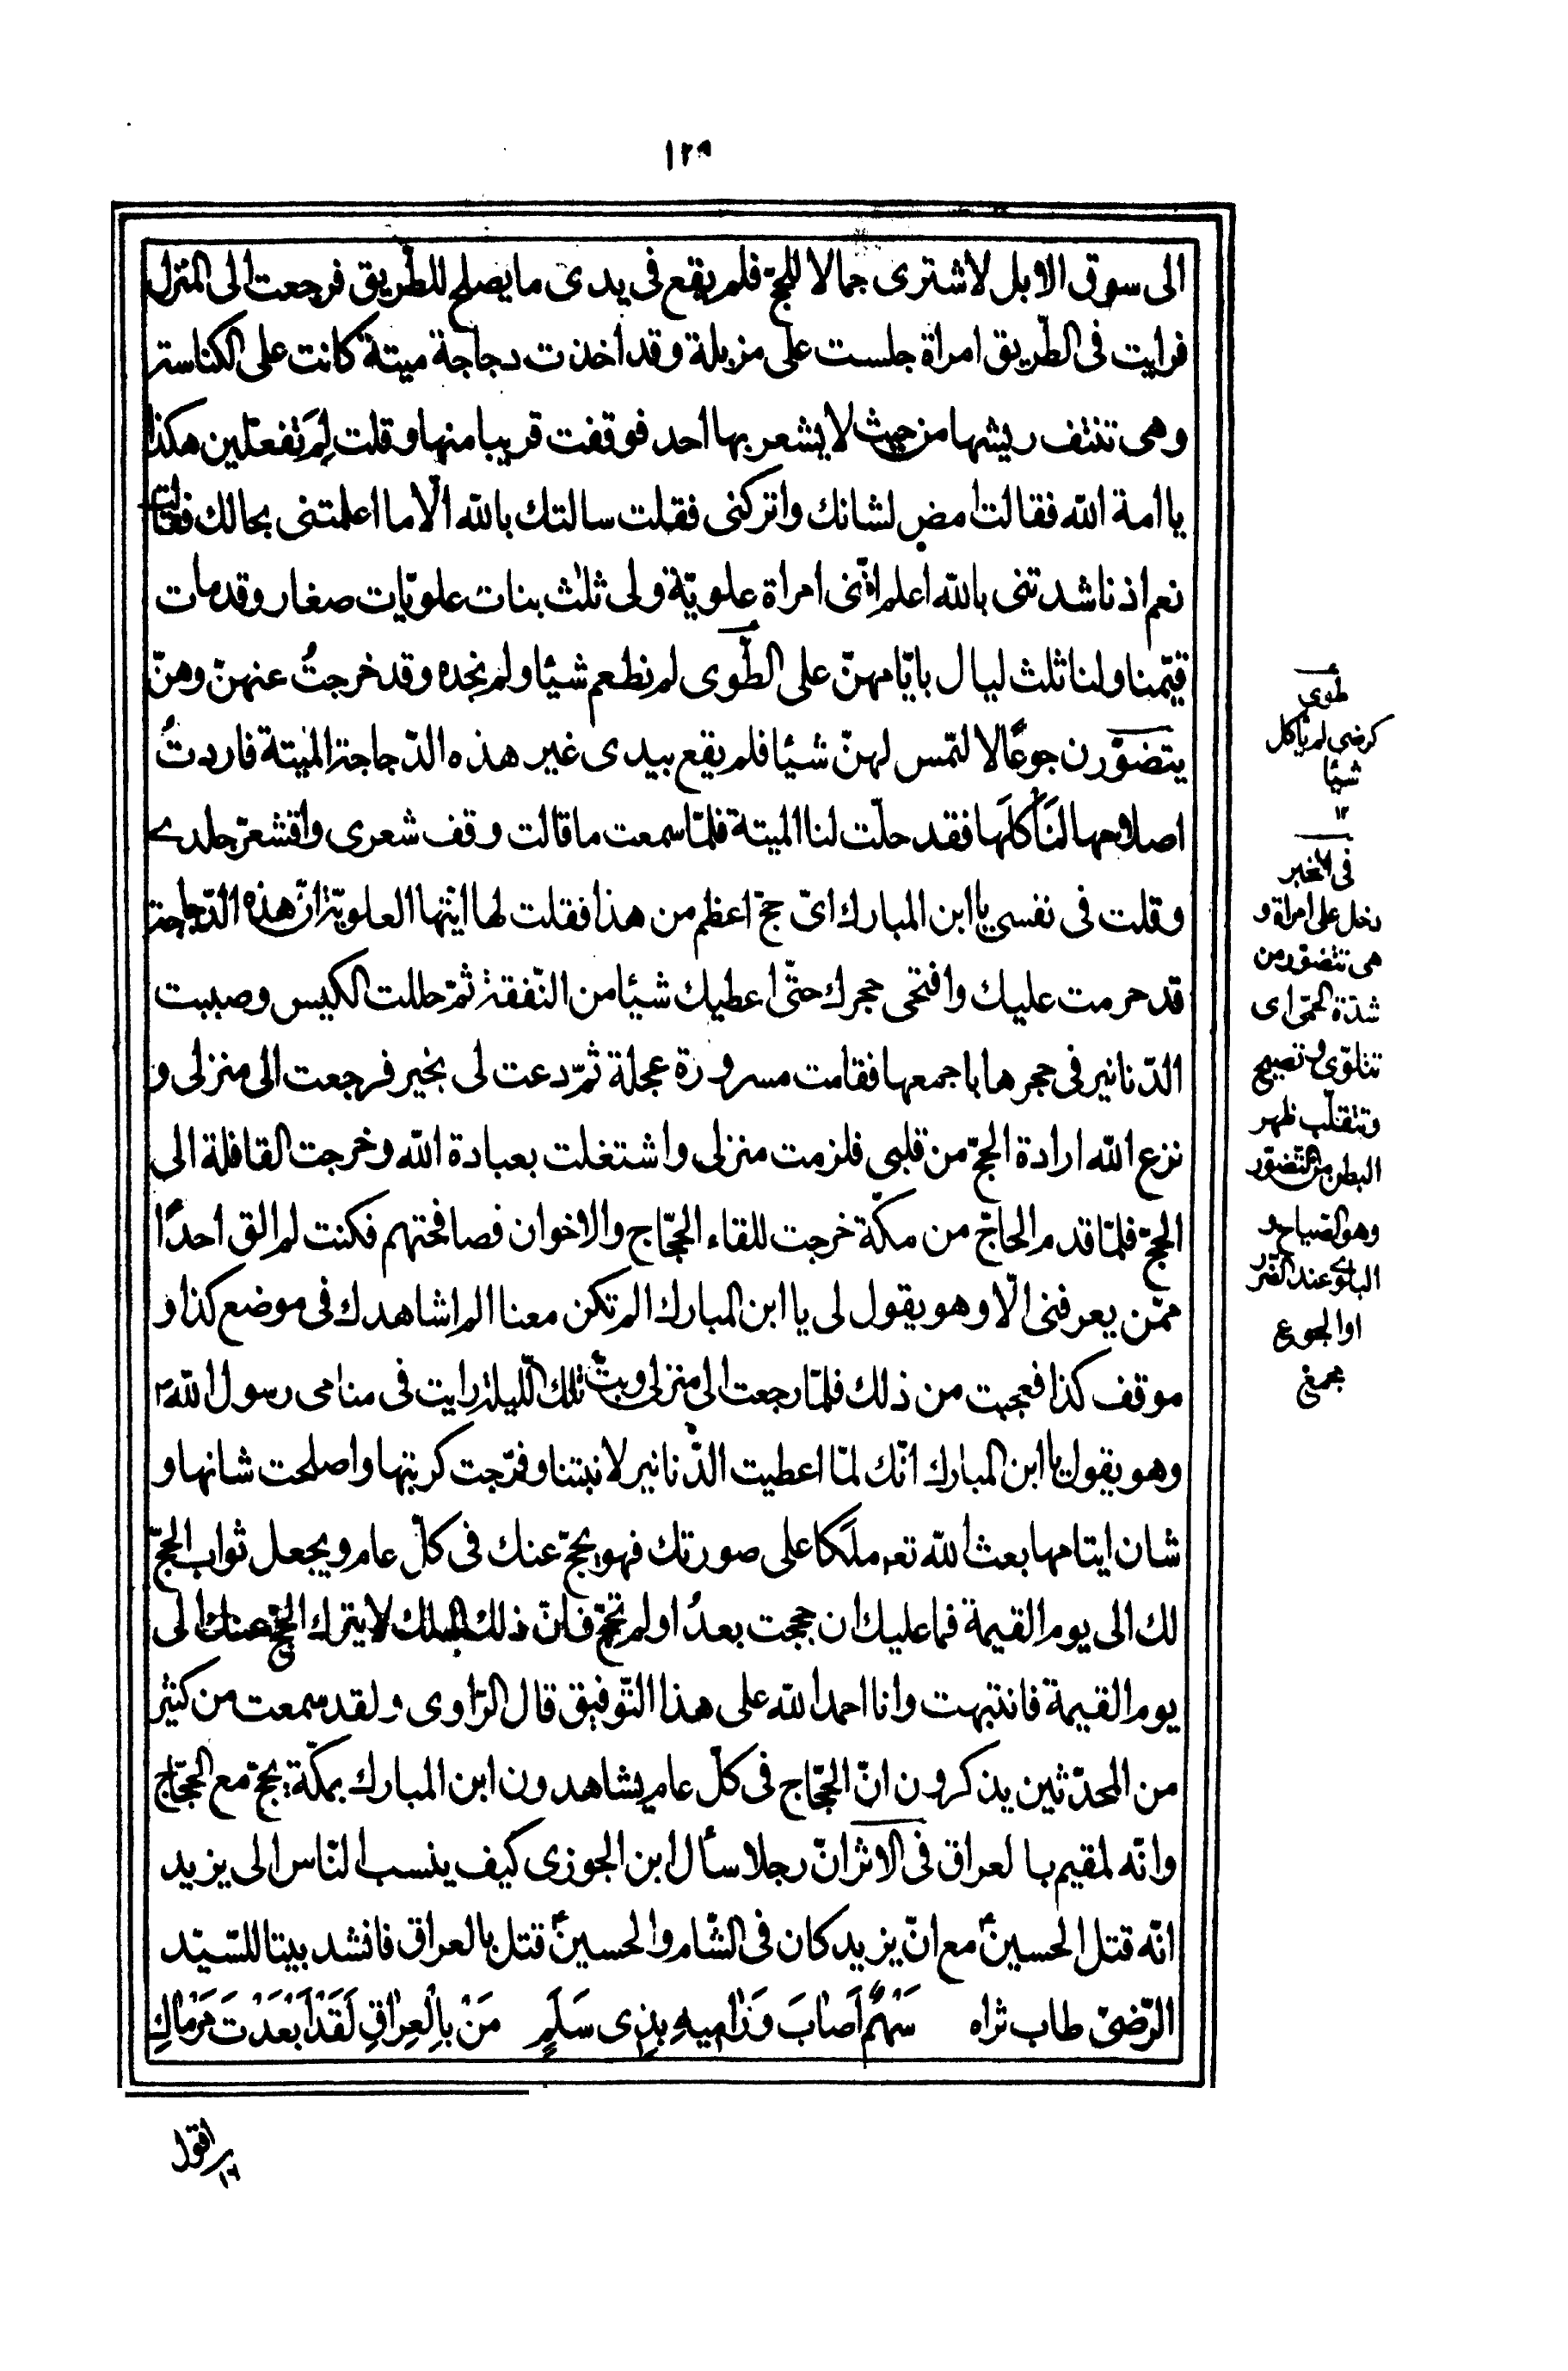 ١٢٩
الى سوق الابل لاشترى جمالا للحجّ فلم يقع فى يدى ما يصلح للطّريق فرجعت الى المنزل
فرايت فى الطّريق امراة جلست على مزبلة وقد اخذت دجاجة ميتة كانت على الكناسة
وهى تنتف ريشها من حيث لا يشعر بها احد فوقفت قريبا منها وقلت لِمَ تفعلين هكذا
يا امة الله فقالت امض لشانك واتركنى فقلت سالتك بالله الّا ما اعلمتنى بحالك فقالت
نعم اذ ناشدتنى بالله اعلم انّنى امراة علويّة ولى ثلث بنات علويّات صغار وقد مات
قيّمنا ولنا ثلث ليال بايّامهنّ على الطّوى لم نطعم شيئا ولم نجده وقد خرجتُ عنهنّ وهنّ
يتضوّرن جوعًا لالتمس لهنّ شيئا فلم يقع بيدى غير هذه الدّجاجة الميتة فاردتُ
اصلاحها لنَأكلَها فقد حلّت لنا الميتة فلمّا سمعت ما قالت وقف شعرى واقشعرّ جلدى
وقلت فى نفسى يا ابن المبارك اىّ حجّ اعظم من هذا فقلت لها ايّتها العلويّة انّ هذه الدّجاجة
قد حرمت عليك وافتحى حجرك حتّى اعطيك شيئا من النّفقة ثمّ حللت الكيس وصببت
الدّنانير فى حجرها باجمعها فقامت مسرورة عجلة ثمّ دعت لى بخير فرجعت الى منزلى و
نزع الله ارادة الحجّ من قلبى فلزمت منزلى واشتغلت بعبادة الله وخرجت القافلة الى
الحجّ فلمّا قدم الحاجّ من مكّة خرجت للقاء الحجّاج والاخوان فصافحتهم فكنت لم الق احدًا
ممّن يعرفنى الّا وهو يقول لى يا ابن المبارك الم تكن معنا الم اشاهدك فى موضع كذا و
موقف كذا فعجبت من ذلك فلمّا رجعت الى منزلى وبتّ تلك اللّيلة رايت فى منامى رسول الله ص
وهو يقول يا ابن المبارك انّك لمّا اعطيت الدّنانير لابنتنا وفرّجت كربتها واصلحت شانها و
شان ايتامها بعث الله تعـ ملَكا على صورتك فهو يحجّ عنك فى كلّ عام ويجعل ثواب الحجّ
لك الى يوم القيمة فما عليك ان حججت بعدُ او لم تحجّ فانّ ذلك الملك لا يترك الحجّ عنك الى
يوم القيمة فانتبهت وانا احمد الله على هذا التّوفيق قال الرّاوى ولقد سمعت من كثير
من المحدّثين يذكرون انّ الحجّاج فى كلّ عام يشاهدون ابن المبارك بمكّة يحجّ مع الحجّاج
وانّه لمقيم بالعراق فى الاثر انّ رجلا سأل ابن الجوزى كيف ينسب النّاس الى يزيد
انّه قتل الحسينؑ مع انّ يزيد كان فى الشّام والحسينؑ قتل بالعراق فانشد بيتا للسّيّد
الرّضىّ طاب ثراه سَهْمٌ اَصَابَ وَرَامِيهِ بِذِى سَلَمٍ مَنْ بِالْعِرَاقِ لَقَدْ اَبْعَدْتَ مَرْمَاكِ
طوى
كرضى لم ياكل
شيئا
١٢
فى الخبر
دخل على امراة و
هى تتضوّر من
شدّة الحمّى اى
تتلوّى وتصيح
وتتقلّب ظهر
البطن من التّضوّر
وهو الصّياح و
عند الضّرّ
او الجوع
مجمع
اقول